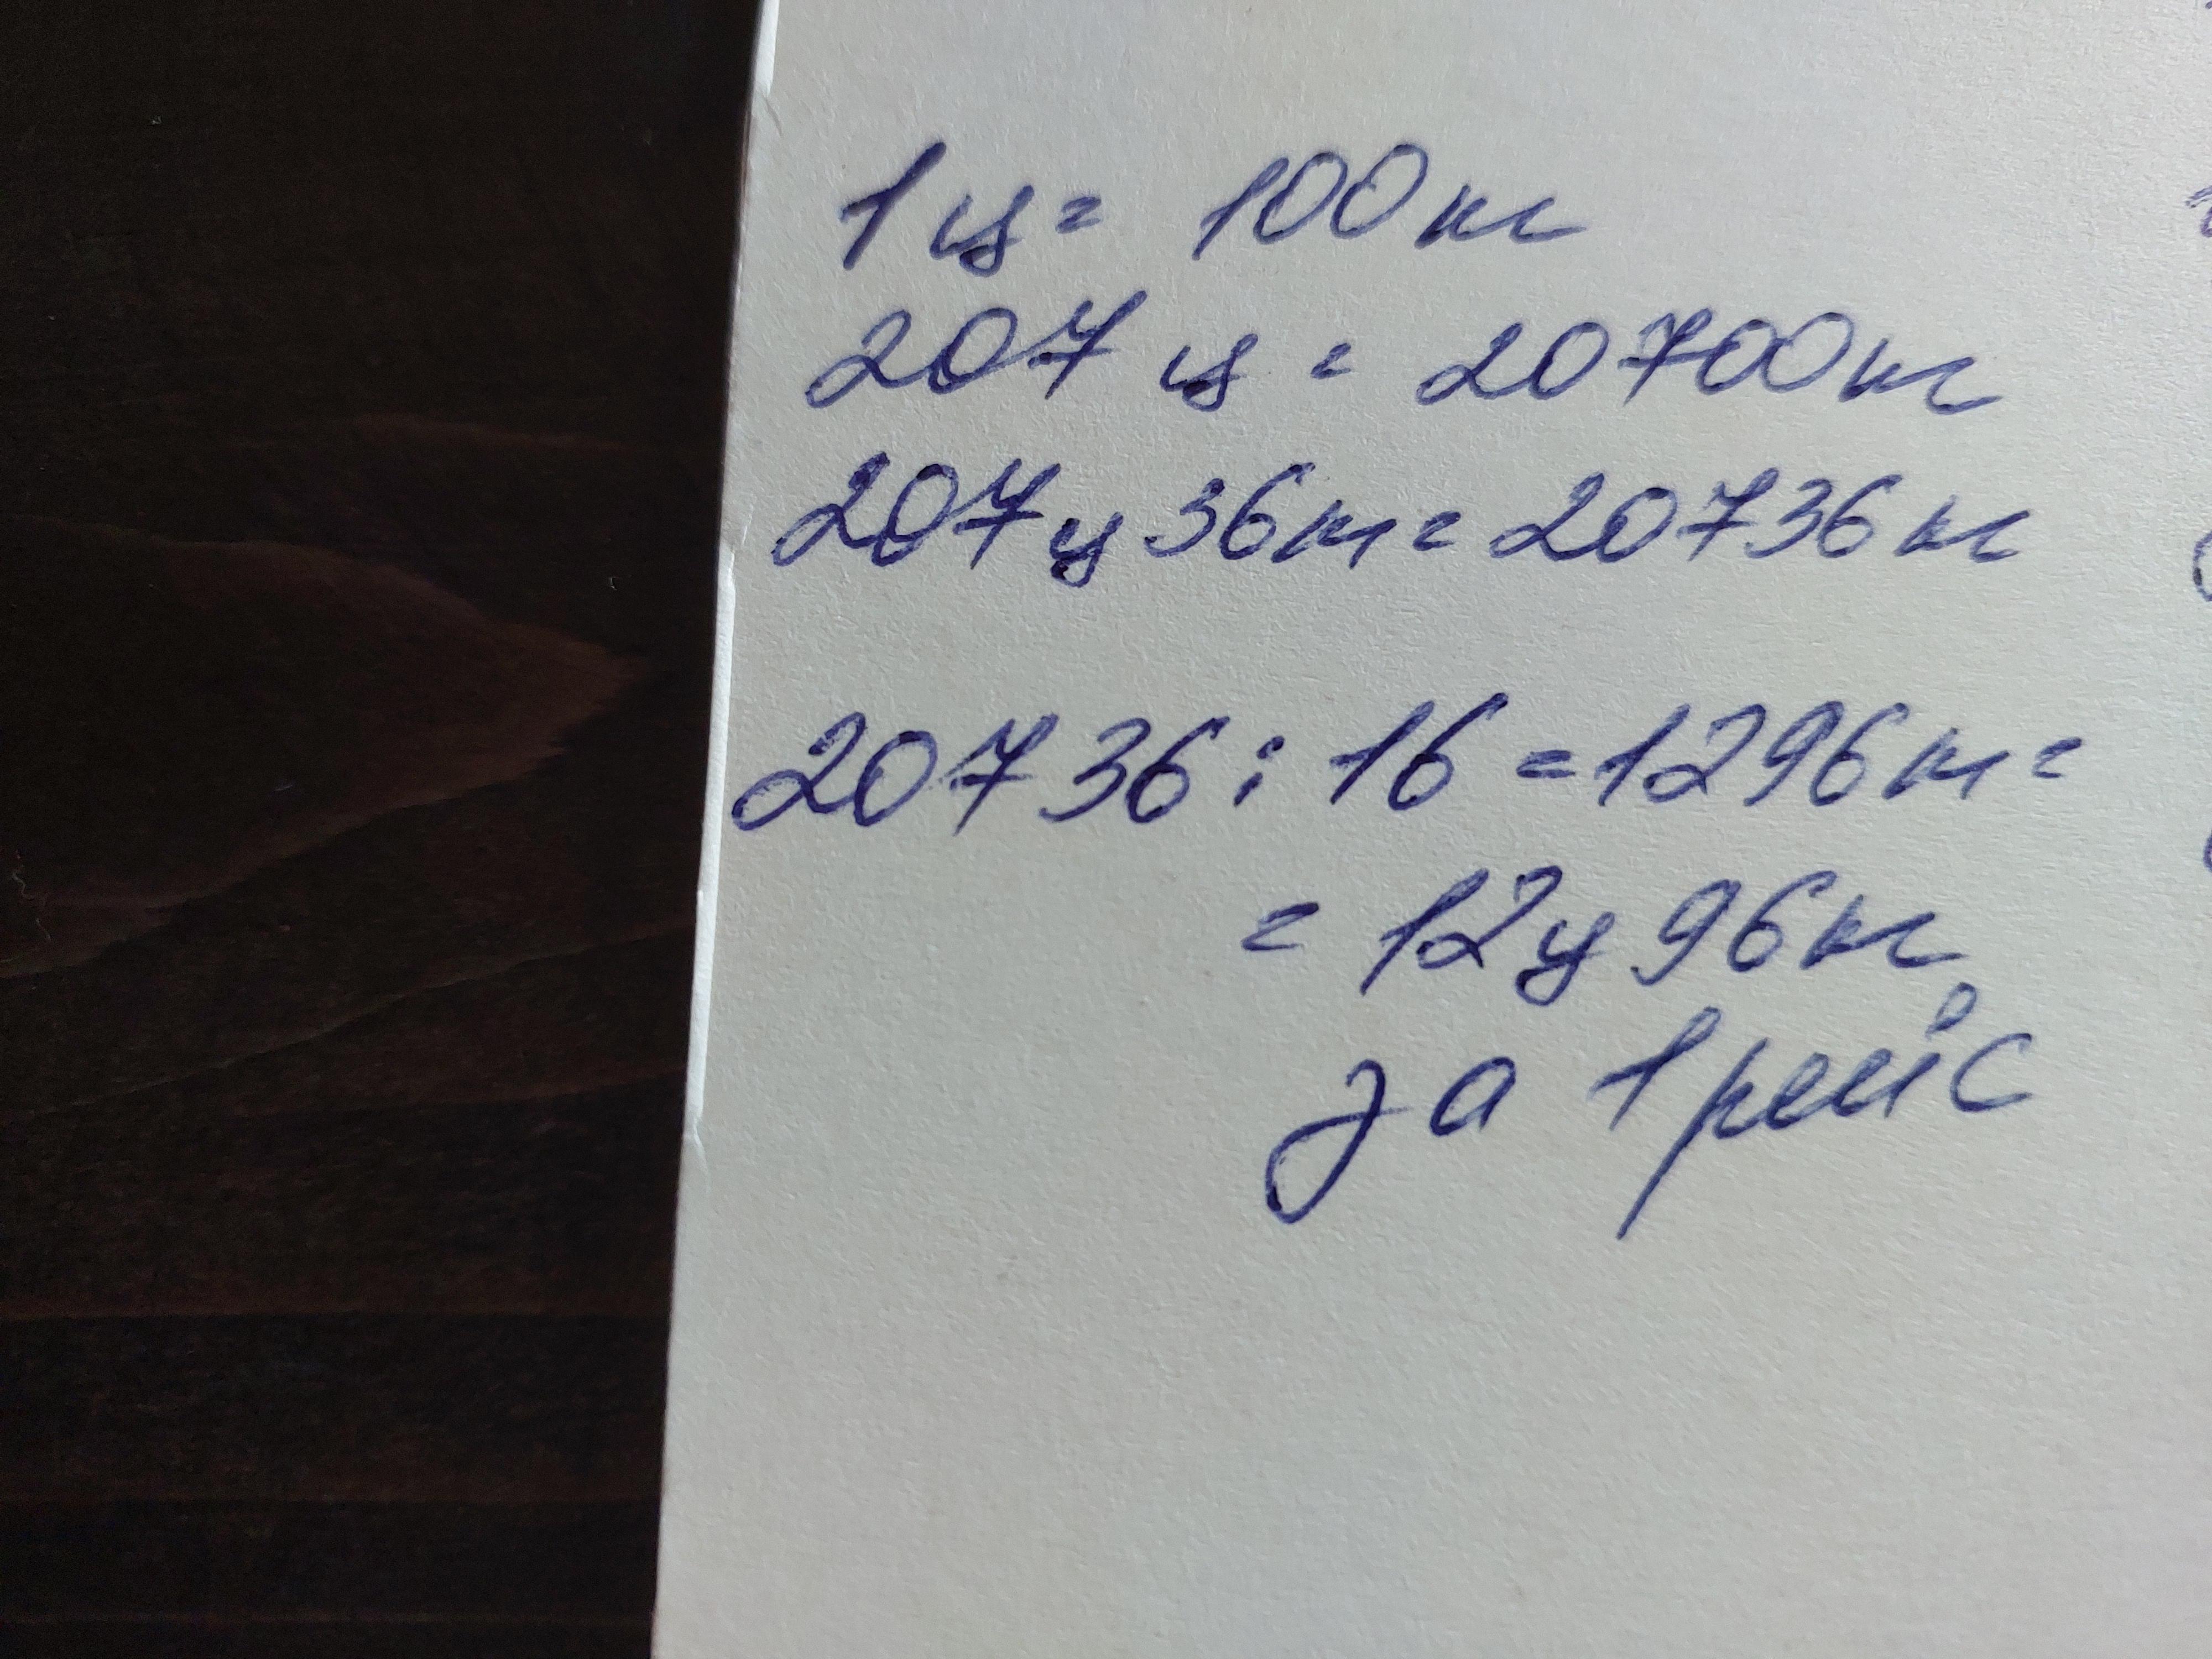 1 ц = 100 кг
207 ц = 20700 кг
207 ц 36 кг = 20736 кг
20736 : 16 = 1296 кг =
= 12 ц 96 кг
за 1 рейс